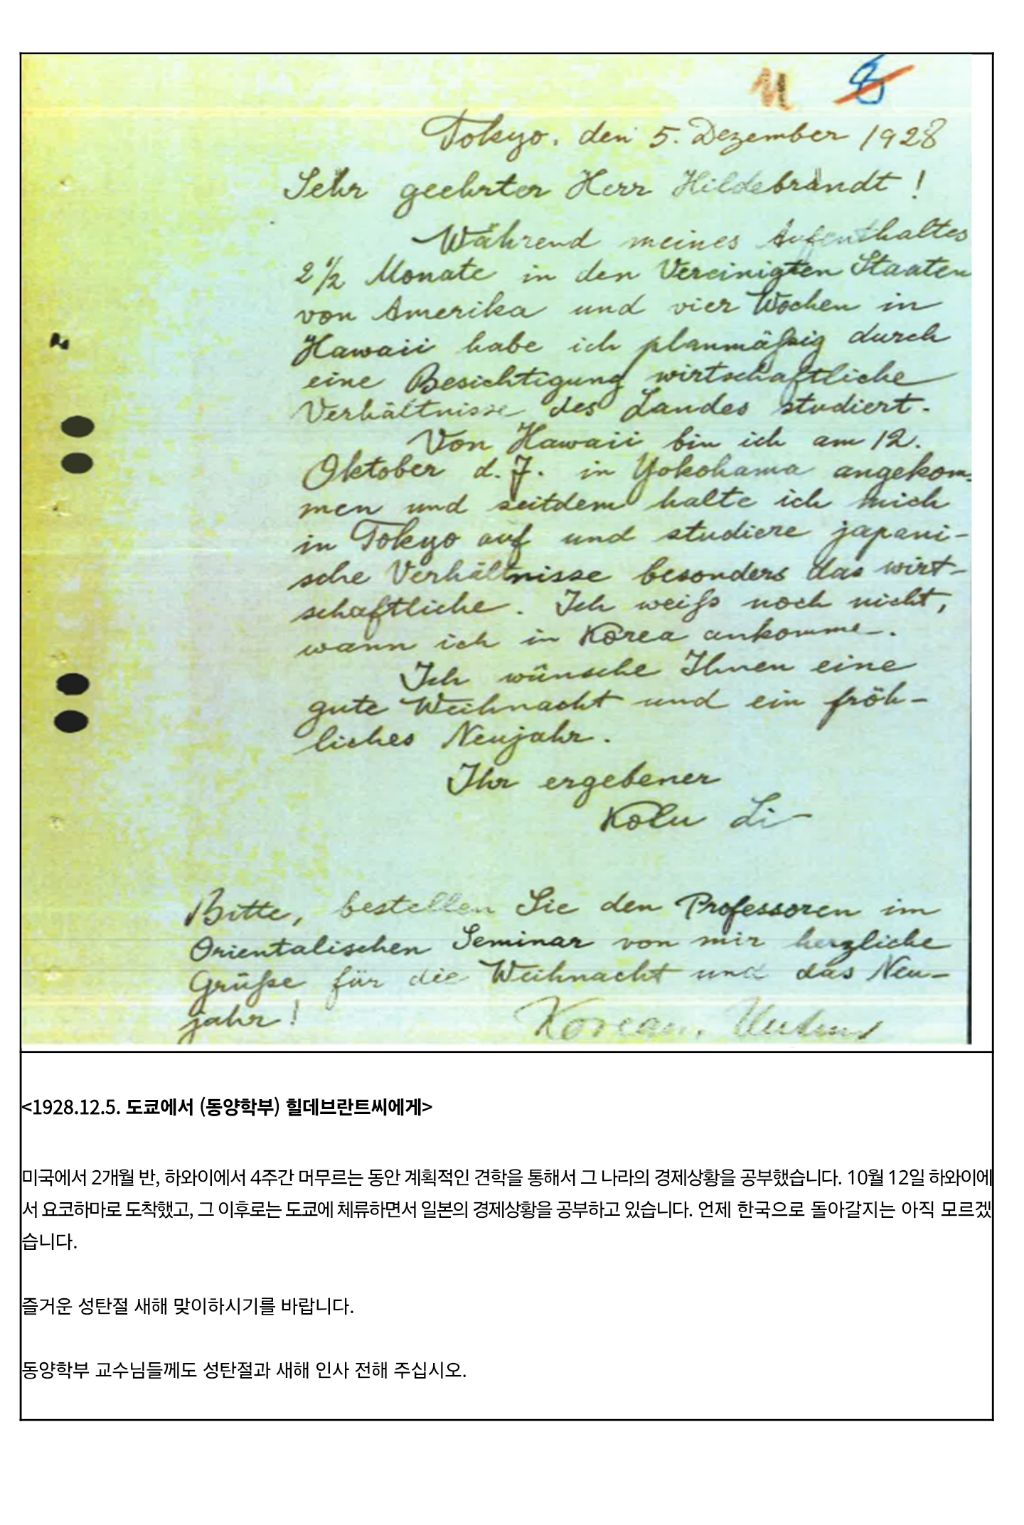 8
Tokyo, den 5. Dezember 1928
Sehr geehrter Herr Hildebrandt !
Während meines Aufenthaltes
2 1/2 Monate in den Vereinigten Staaten
von Amerika und vier Wochen in
Hawaii habe ich planmäßig durch
eine Besichtigung wirtschaftliche
Verhältnisse des Landes studiert.
Von Hawaii bin ich am 12.
Oktober d. J. in Yokohama angekom-
men und seitdem halte ich mich
in Tokyo auf und studiere japani-
sche Verhältnisse besonders das wirt-
schaftliche. Ich weiß noch nicht,
wann ich in Korea ankomme.
Ich wünsche Ihnen eine
gute Weihnacht und ein fröh-
liches Neujahr.
Ihr ergebener
Kolu Li
Bitte, bestellen Sie den Professoren im
Orientalischen Seminar von mir herzliche
Grüße für die Weihnacht und das Neu-
jahr!
<1928.12.5. 도쿄에서 (동양학부) 힐데브란트씨에게>
미국에서 2개월 반, 하와이에서 4주간 머무르는 동안 계획적인 견학을 통해서 그 나라의 경제상황을 공부했습니다. 10월 12일 하와이에
서 요코하마로 도착했고, 그 이후로는 도쿄에 체류하면서 일본의 경제상황을 공부하고 있습니다. 언제 한국으로 돌아갈지는 아직 모르겠
습니다.
즐거운 성탄절 새해 맞이하시기를 바랍니다.
동양학부 교수님들께도 성탄절과 새해 인사 전해 주십시오.